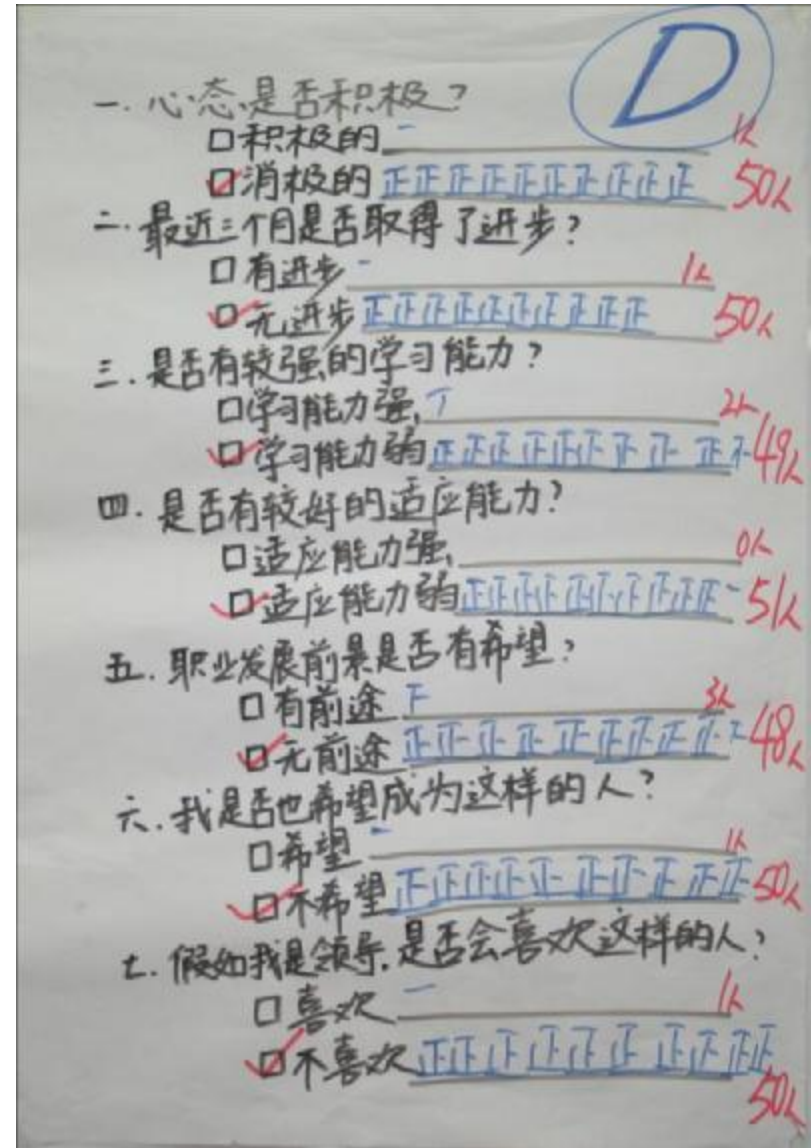 D
一.心态是否积极?
□积极的 一 1人
□消极的 正正正正正正正正正正 50人
二.最近三个月是否取得了进步?
□有进步 一 1人
□无进步 正正正正正正正正正正 50人
三.是否有较强的学习能力?
□学习能力强 丅 2人
□学习能力弱 正正正正正正正正正 49人
四.是否有较好的适应能力?
□适应能力强 0人
□适应能力弱 正正正正正正正正正正一 51人
五.职业发展前景是否有希望?
□有前途 下 3人
□无前途 正正正正正正正正正下 48人
六.我是否也希望成为这样的人?
□希望 一 1人
□不希望 正正正正正正正正正正 50人
七.假如我是领导,是否会喜欢这样的人?
□喜欢 一 1人
□不喜欢 正正正正正正正正正正
50人